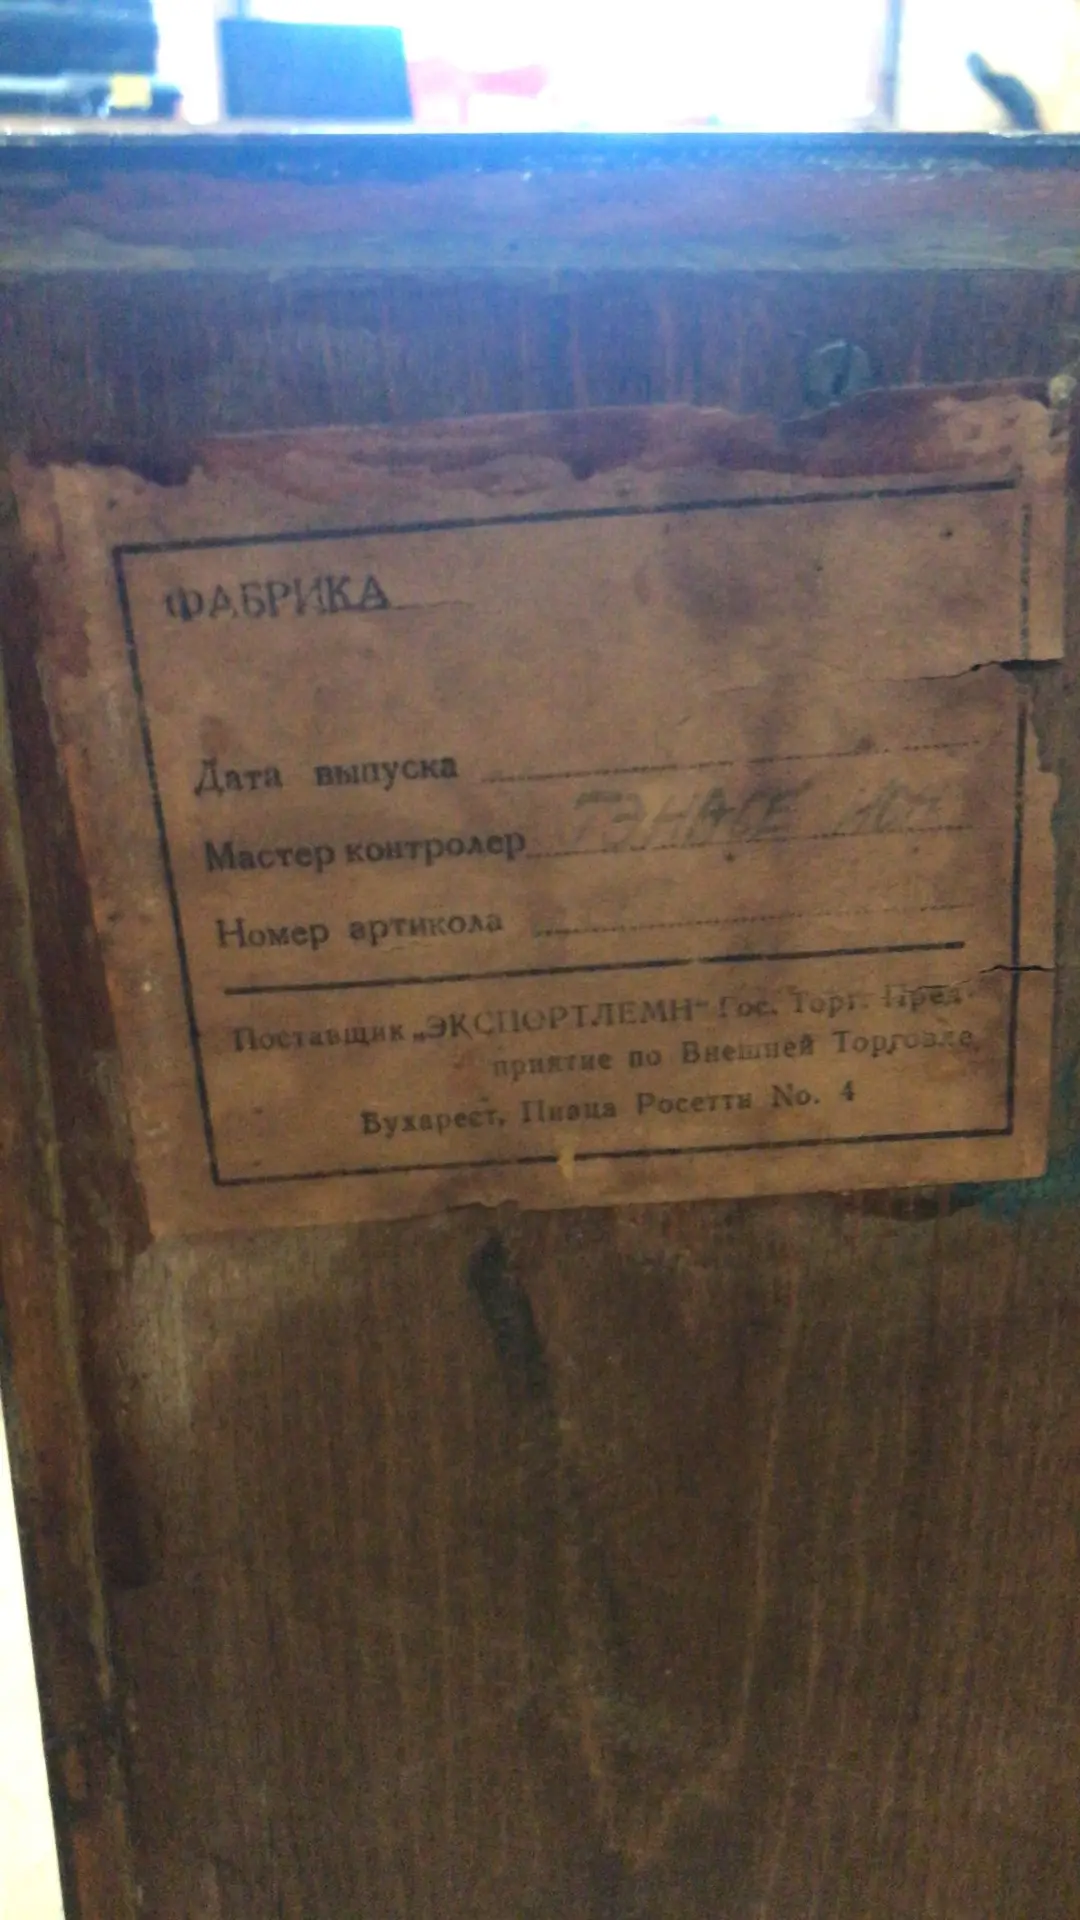 ФАБРИКА
Дата выпуска
Мастер контролер
Номер артикола
Поставщик „ЭКСПОРТЛЕМН“ Гос. Торг. Пред-
приятие по Внешней Торговле
Бухарест, Пиаца Росетти No. 4